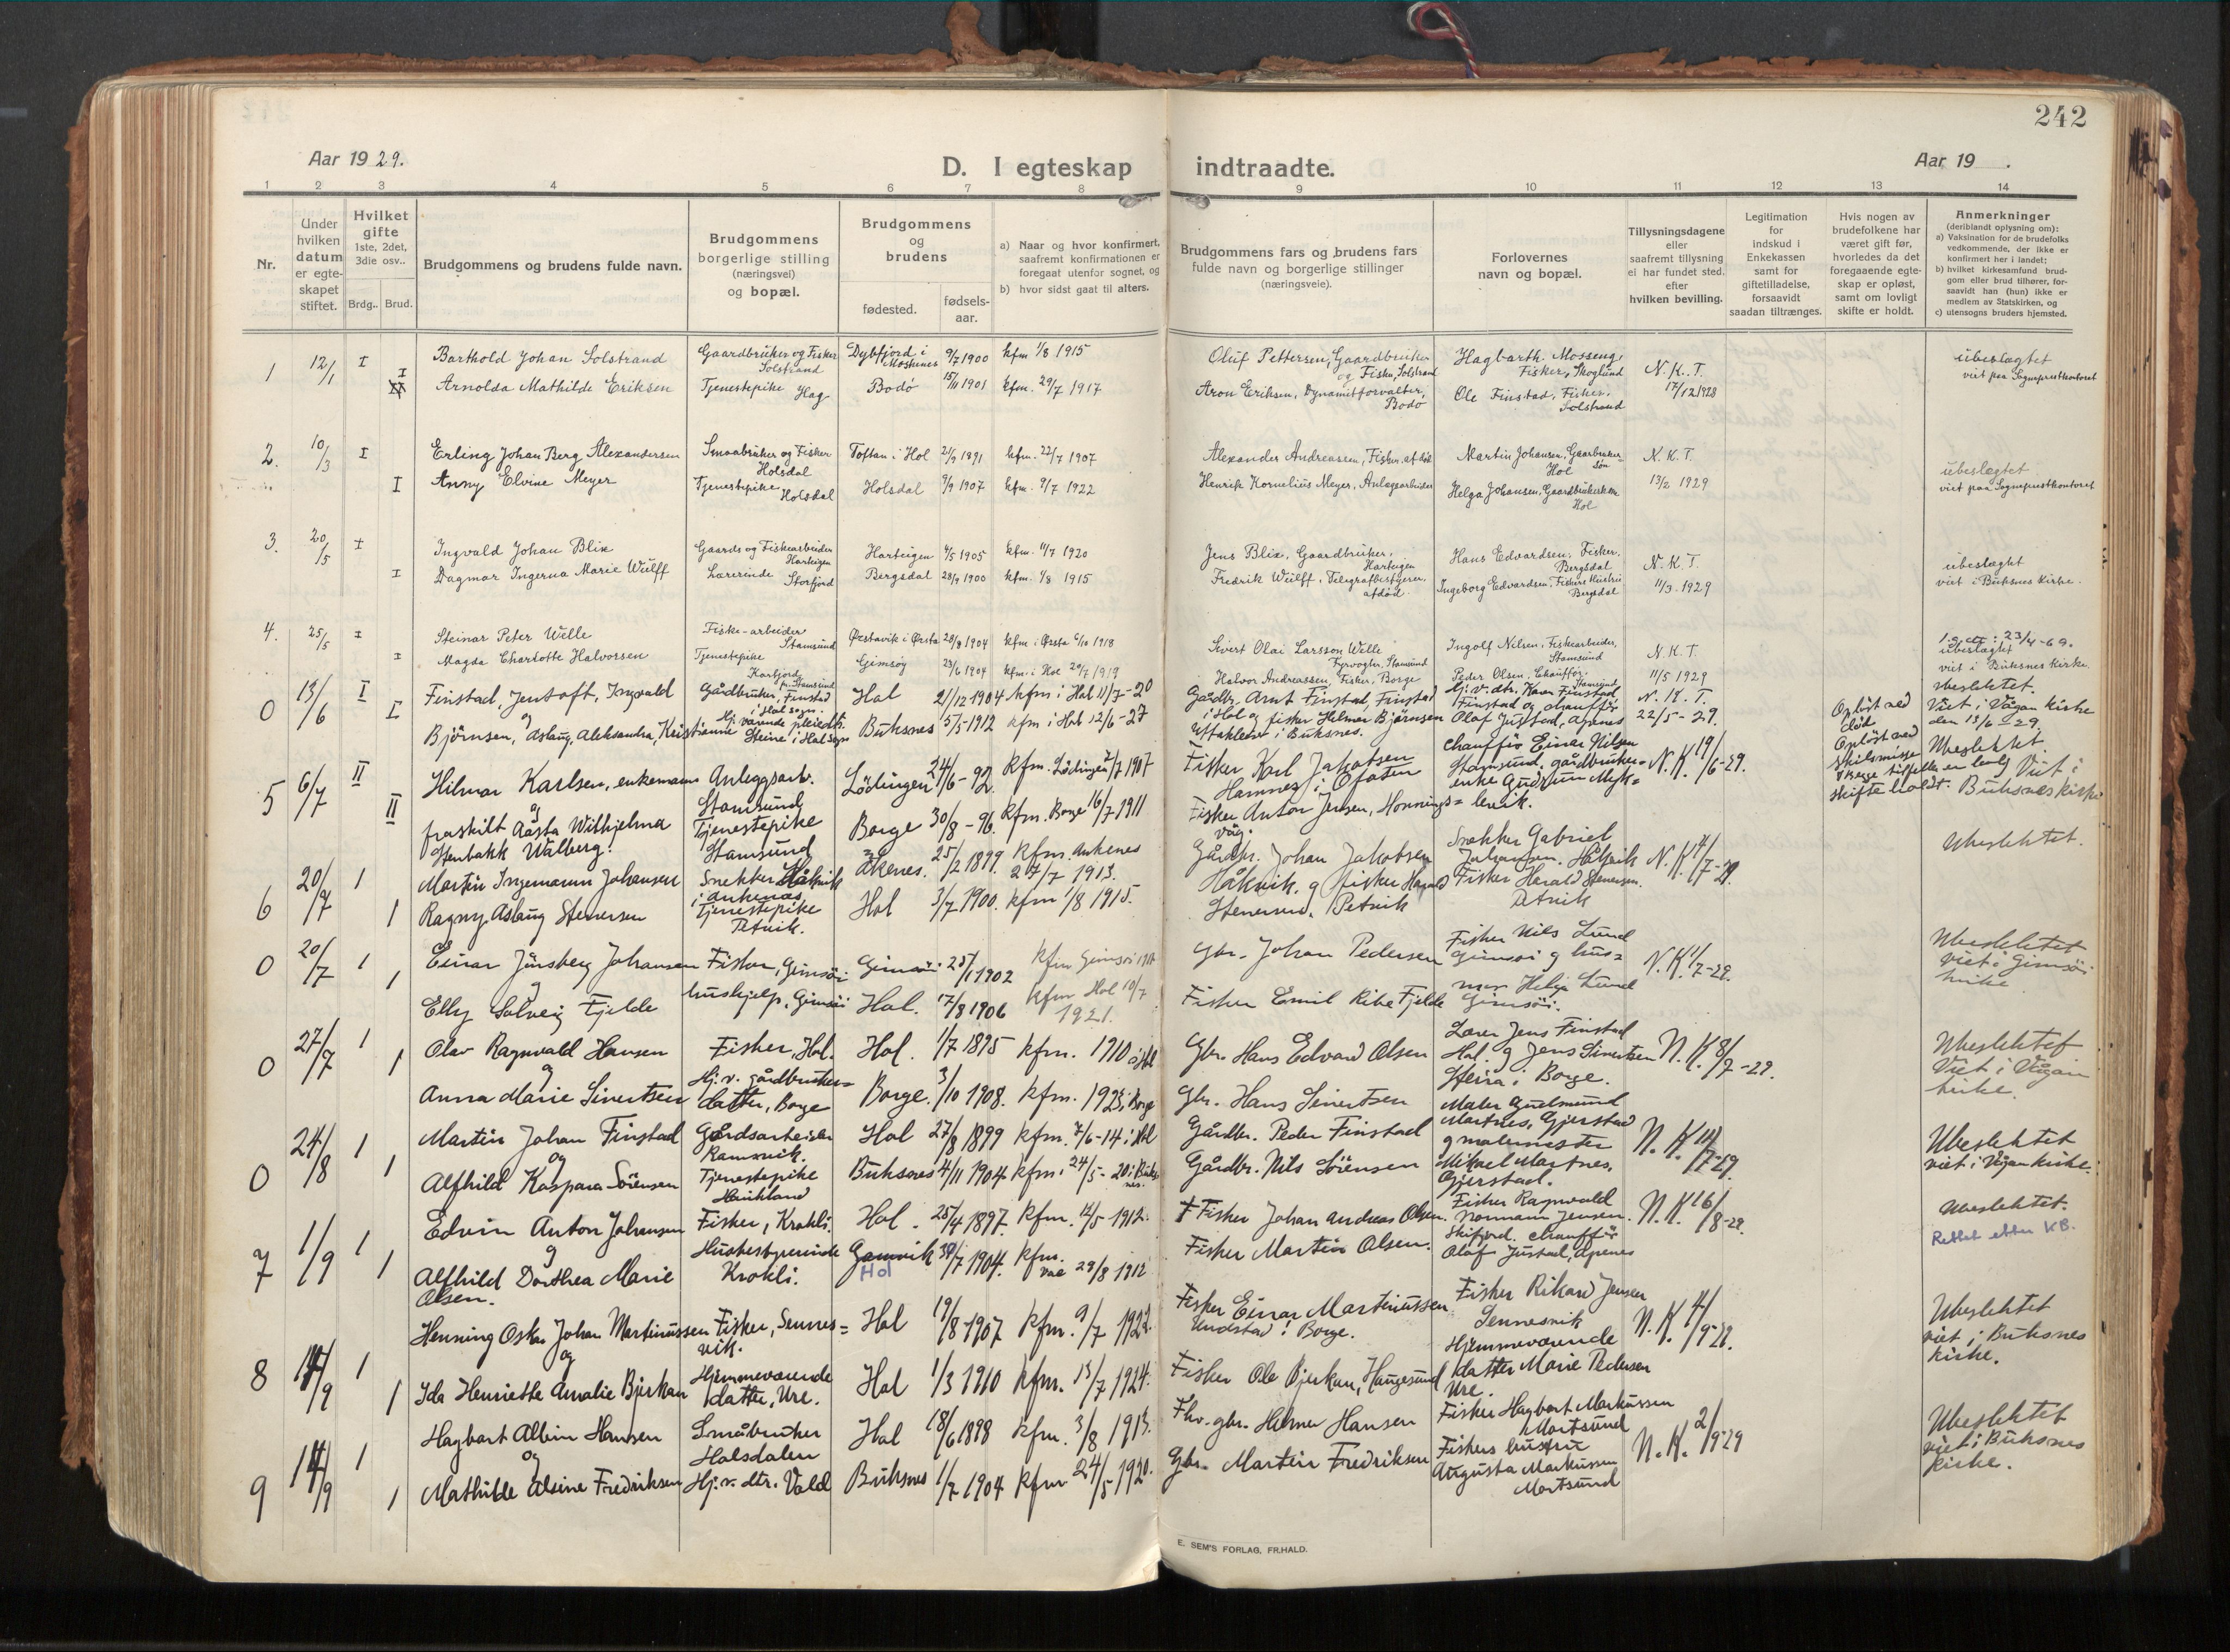 242
Aar 1929.
D. I egteskap indtraadte.
Aar 19 .
1 2 3 4 5 6 7 8 9 10 11 12 13 14
Nr.
Under hvilken datum er egteskapet stiftet.
Hvilket gifte 1ste, 2det, 3die osv..
Brdg.. Brud.
Brudgommens og brudens fulde navn.
Brudgommens borgerlige stilling (næringsvei) og bopæl.
Brudgommens og brudens
fødested.
fødsels-aar.
a) Naar og hvor konfirmert, saafremt konfirmationen er foregaat utenfor sognet, og
b) hvor sidst gaat til alters.
Brudgommens fars og brudens fars fulde navn og borgerlige stillinger (næringsveie).
Forlovernes navn og bopæl.
Tillysningsdagene eller saafremt tillysning ei har fundet sted, efter hvilken bevilling.
Legitimation for indskud i Enkekassen samt for giftetilladelse, forsaavidt saadan tiltrænges.
Hvis nogen av brudefolkene har været gift før, hvorledes da det foregaaende egteskap er opløst, samt om lovligt skifte er holdt.
Anmerkninger (deriblandt oplysning om):
a) Vaksination for de brudefolks vedkommende, der ikke er konfirmert her i landet;
b) hvilket kirkesamfund brudgom eller brud tilhører, forsaavidt han (hun) ikke er medlem av Statskirken, og
c) utensogns bruders hjemsted.
1 12/1 I Barthold Johan Solstrand Gaardbruker og Fisker Solstrand Dybfjord i Moskenes 9/7 1900 kfm 1/8 1915 Oluf Pettersen, Gaardbruker og Fisker, Solstrand Hagbarth Mosseng, Fisker, Skoglund N. K. T. ubeslægtet
I Arnolda Mathilde Eriksen Tjenestepike Hag Bodø 15/11 1901 kfm. 29/7 1917 Aron Eriksen, Dynamitforvalter, Bodø Ole Finstad, Fisker, Solstrand 17/12 1928 viet paa Sogneprestkontoret
2. 10/3 I Erling Johan Berg Alexandersen Smaabruker og Fisker Holsdal Toftan i Hol 21/9 1891 kfm. 22/7 1907 Alexander Andreassen, Fisker, Martin Johansen, Gaardbrukersøn Hol N. K. T. ubeslægtet
I Anny Elvine Meyer Tjenestepike Holsdal Holsdal 9/9 1907 kfm. 9/7 1922 Henrik Kornelius Meyer, Anlægsarbeider Helga Johansen, Gaardbrukerkone Hol 13/2 1929 viet paa Sogneprestkontoret
3. 20/5 I Ingvald Johan Blix Gaards og Fiskearbeider Harteigen Harteigen 4/5 1905 kfm. 11/7 1920 Jens Blix, Gaardbruker, Harteigen Hans Edvardsen, Fisker, Bergsdal N. K. T. ubeslægtet
I Dagmar Ingerna Marie Wulff Lærerinde Storfjord Bergsdal 28/9 1900 kfm. 1/8 1915 Fredrik Wulff, Telegrafbestyrer, afdød. Ingeborg Edvardsen, Fiskers Hustru Bergsdal 11/3 1929 viet i Buksnes Kirke.
4. 25/5 I Steinar Peter Welle Fiske-arbeider Stamsund Ørstavik i Ørsta 28/8 1904 kfm i Ørsta 6/10 1918 Sivert Olai Larsson Welle Fyrvogter, Stamsund Ingolf Nilsen, Fiskearbeider, Stamsund N. K. T. 23/4-69. ubeslægtet
I Magda Charlotte Halvorsen Tjenestepike Kartfjord pr. Stamsund Gimsøy 23/6 1904 kfm. i Hol 20/7 1919 Halvor Andreassen, Fisker, Borge Peder Olsen, Chauffør, Stamsund 11/5 1929 viet i Buksnes Kirke.
0 13/6 I Finstad, Jentoft, Ingvald Gårdbruker, Finstad i Hol sogn. Hol 21/12 1904 kfm i Hol 11/7-20 Gårdbr. Arnt Finstad, Finstad i Hol og fisker Helmer Bjørnsen Uttakleiv i Buksnes. Hj. v. dtr. Karen Finstad, Finstad og chauffør Olaf Justad, Apenes N. K. T. 22/5-29. Ubeslektet. Viet i Vågan kirke den 13/6-29.
og
I Bjørnsen, Aslaug, Aleksandra, Kristianne Hj. værende Steine i Hol sogn Buksnes 5/5-1912 kfm i Hol 12/6-27
5 6/7 II Hilmar Karlsen, enkemann Anleggsarb. Stamsund Lødingen 24/6-92. kfm. Lødingen 2/7 1907 Fisker Karl Jakobsen Hamnes i Ofoten chauffør Einar Nilsen Stamsund, gårdbruker-enke Gudrun N. K. 19/6-29. Opløst ved død Opløst ved skilsmisse I begge tilfelle er lovlig skifte holdt. Ubeslektet. Viet i Buksnes kirke
og
II fraskilt Aasta Wilhjelma Stenbakk Walberg. Tjenestepike Stamsund Borge 30/8-96. kfm. Borge 16/7 1911 Fisker Anton Jensen, Honningsvåg.
6 20/7 1 Martin Ingemann Johansen Snekker Håkvik i Ankenes Ankenes. 25/2 1899 kfm. Ankenes 27/7 1913. Gårdbr. Johan Jakobsen Håkvik og fisker Harald Stenersen, Petvik Snekker Gabriel Johansen, Håkvik Fisker Herald Stenersen. Petvik N. K. 4/7-29. Ubeslektet.
1 Ragny Aslaug Stenersen Tjenestepike Petvik. Hol 3/7 1900. kfm 1/8 1915.
0 20/7 1 Einar Jünsberg Johansen Fisker, Gimsøi Gimsøi 25/1 1902 kfm Gimsøi Gbr. Johan Pedersen Fisker Nils Lund Gimsøi og husmor Helga Lund Gimsøi. N. K. 1/7-29. Ubeslektet viet i Gimsøi kirke
og
1 Elly Solveig Fjelde hushjelp, Gimsøi Hol. 17/8 1906 kfm Hol 10/7 1921. Fisker Emil Ribe Fjelde
0 27/7 1 Olav Ragnvald Hansen Fisker, Hol. Hol. 1/7 1895 kfm. 1910 i Hol Gbr. Hans Edvard Olsen Lærer Jens Finstad Hol. og Jens Sivertsen Steira i Borge. N. K. 8/7-29. Ubeslektet Viet i Vågan kirke.
og
1 Anna Marie Sivertsen Hj. v. gårdbruker-datter, Borge Borge. 3/10 1908. kfm. 1923 i Borge Gbr. Hans Sivertsen
0 24/8 1 Martin Johan Finstad Gårdsarbeider Ramsvik. Hol 27/8 1899 kfm. 7/6-14 i Hol Gårdbr. Peder Finstad Maler Gudmund Martnes, Gjerstad og malermester Mikael Martnes, Gjerstad. N. K. 11/7-29. Ubeslektet viet i Vågan kirke.
og
1 Alfhild Kaspara Sörensen Tjenestepike Buksnes 4/11 1904 kfm. 24/5-20 i Buksnes. Gårdbr. Nils Sörensen
7 1/9 1 Edvin Anton Johansen Fisker, Krokli. Hol. 25/4 1897. kfm. 12/5 1912. † Fisker Johan Andreas Olsen. Fisker Ragnvald Normann Jensen. Skifjord. chauffør Olaf Justad, Apenes N. K. 16/8-29. Ubeslektet.
og
1 Alfhild Dorthea Marie Olsen. Husbestyrerinde Krokli. Gamvik Hol 30/7 1904. kfm. 29/8 1912 Fisker Martin Olsen. Rettet etter KB.
8 14/9 1 Henning Oskar Johan Martinussen Fisker, Sennesvik. Hol 19/8 1907 kfm. 9/7 1922. Fisker Einar Martinussen Undstad i Borge. Fisker Rikard Jensen Sennesvik Hjemmeværende datter Marie Pedersen Ure. N. K. 4/9-29. Ubeslektet viet i Buksnes kirke.
og
1 Ida Henriette Amalie Bjerkan Hjemmeværende datter, Ure. Hol 1/3 1910 kfm. 13/7 1924. Fisker Ole Bjerkan, Haugesund
9 14/9 1 Hagbart Albin Hansen Småbruker Holsdalen Hol 18/6 1898 kfm. 3/8 1913. Fhv. gbr. Helmer Hansen Fisker Hagbart Markussen Mortsund Fiskers hustru Augusta Markussen Mortsund N. K. 2/9-29 Ubeslektet viet i Buksnes kirke.
og
1 Mathilde Alsine Fredriksen Hj. v. dtr. Vold Buksnes 1/7 1904 kfm 24/5-1920. Gbr. Martin Fredriksen
E. SEM'S FORLAG, FR.HALD.